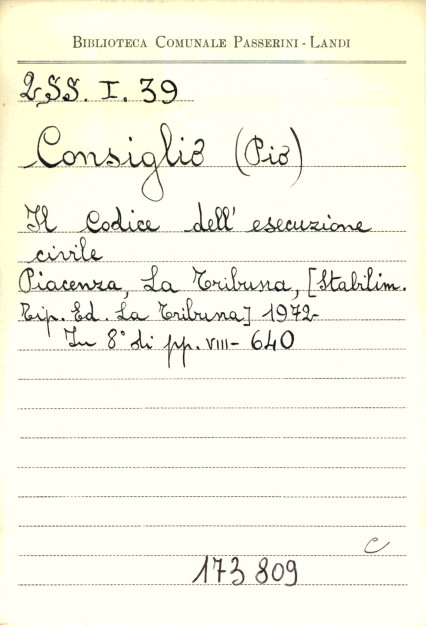 BIBLIOTECA COMUNALE PASSERINI - LANDI
2SS. I. 39
Consiglio (Pio)
Il Codice dell' esecuzione
civile
Piacenza, La Tribuna, [Stabilim.
Tip. Ed. La Tribuna] 1972
In 8° di pp. VIII - 640
c
173809